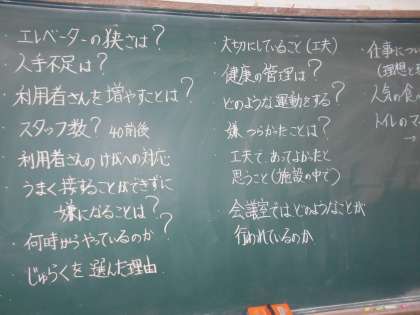 ・エレベーターの狭さは？
・人手不足は？
・利用者さんを増やすことは？
・スタッフ数？ 40前後
・利用者さんのけがへの対応
・うまく接することができずに
嫌になることは？
・何時からやっているのか？
・じゅらくを選んだ理由
・大切にしていること(工夫)
・健康の管理は？
・どのような運動をする？
・嫌、つらかったことは？
・工夫で、あってよかったと
思うこと(施設の中で)
・会議室ではどのようなことが
行われているのか
・仕事につい
(理想と
・人気の食
・トイレのマ